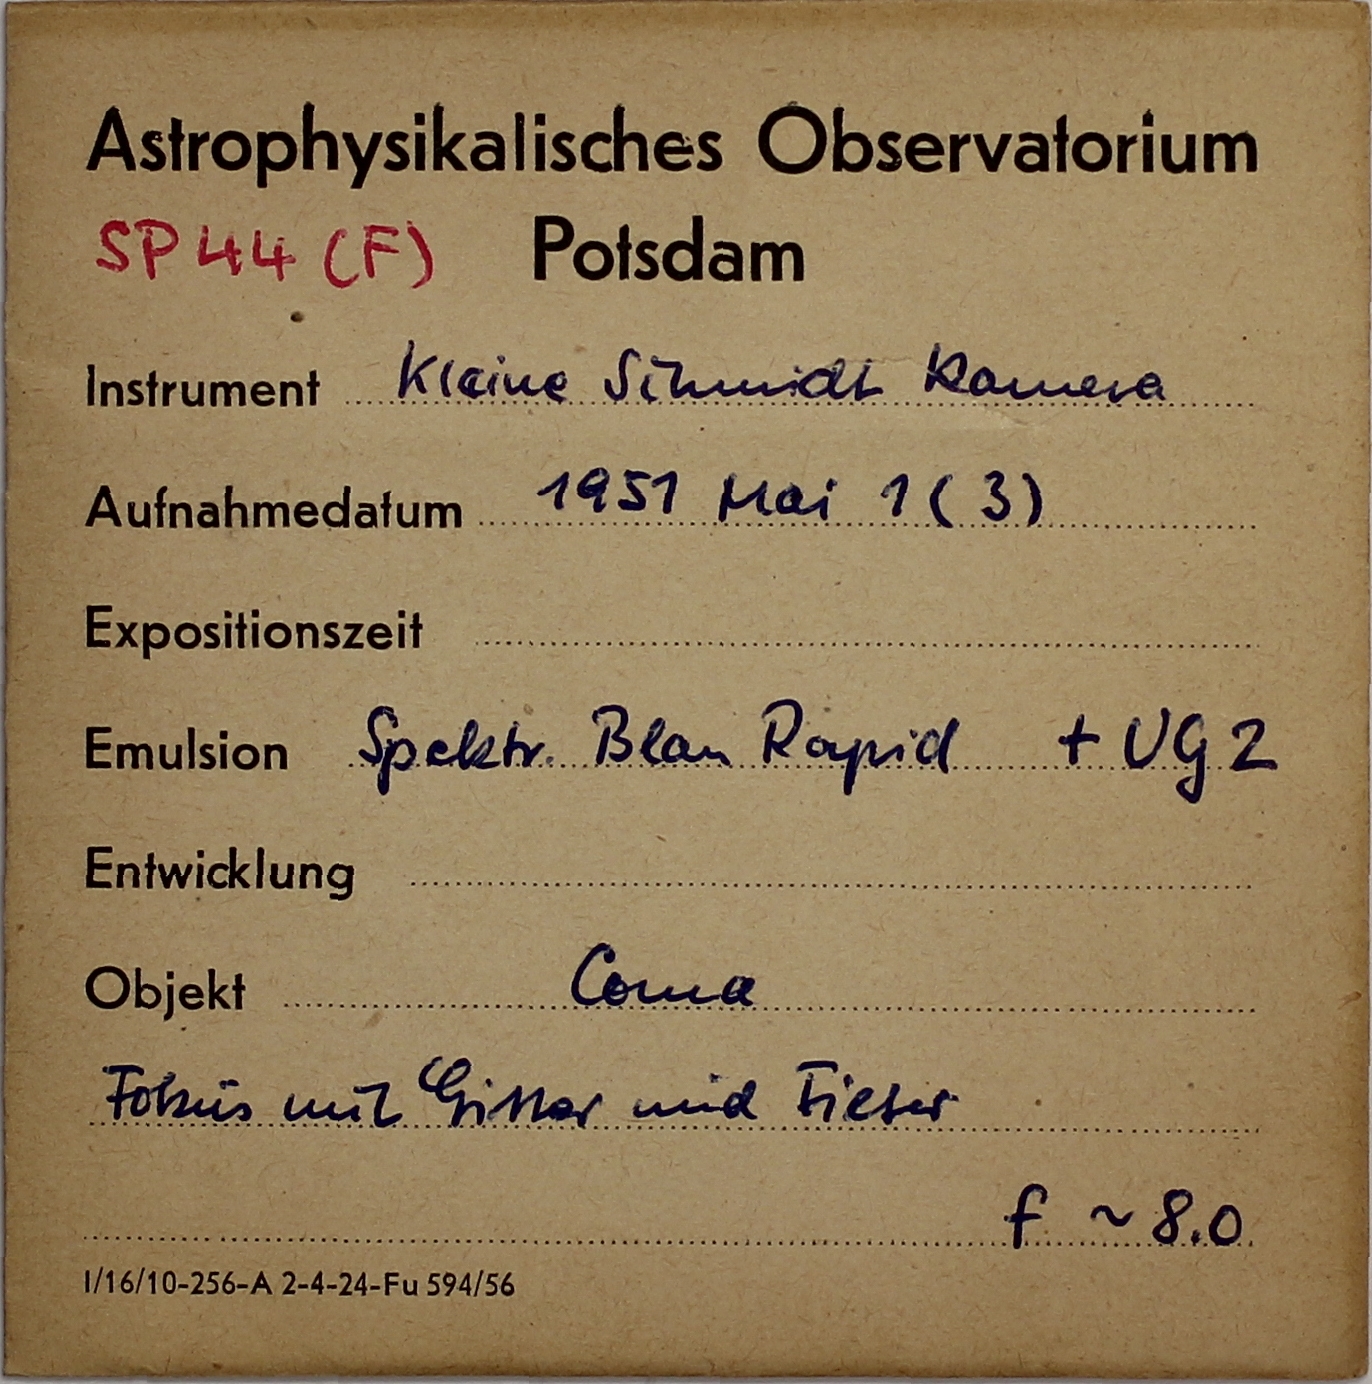 Astrophysikalisches Observatorium
SP 44 (F) Potsdam
Instrument Kleine Schmidt Kamera
Aufnahmedatum 1951 Mai 1 (3)
Expositionszeit
Emulsion Spektr. Blau Rapid + UG 2
Entwicklung
Objekt Coma
Fokus mit Gitter und Filter
f ~ 8.0
I/16/10-256-A 2-4-24-Fu 594/56